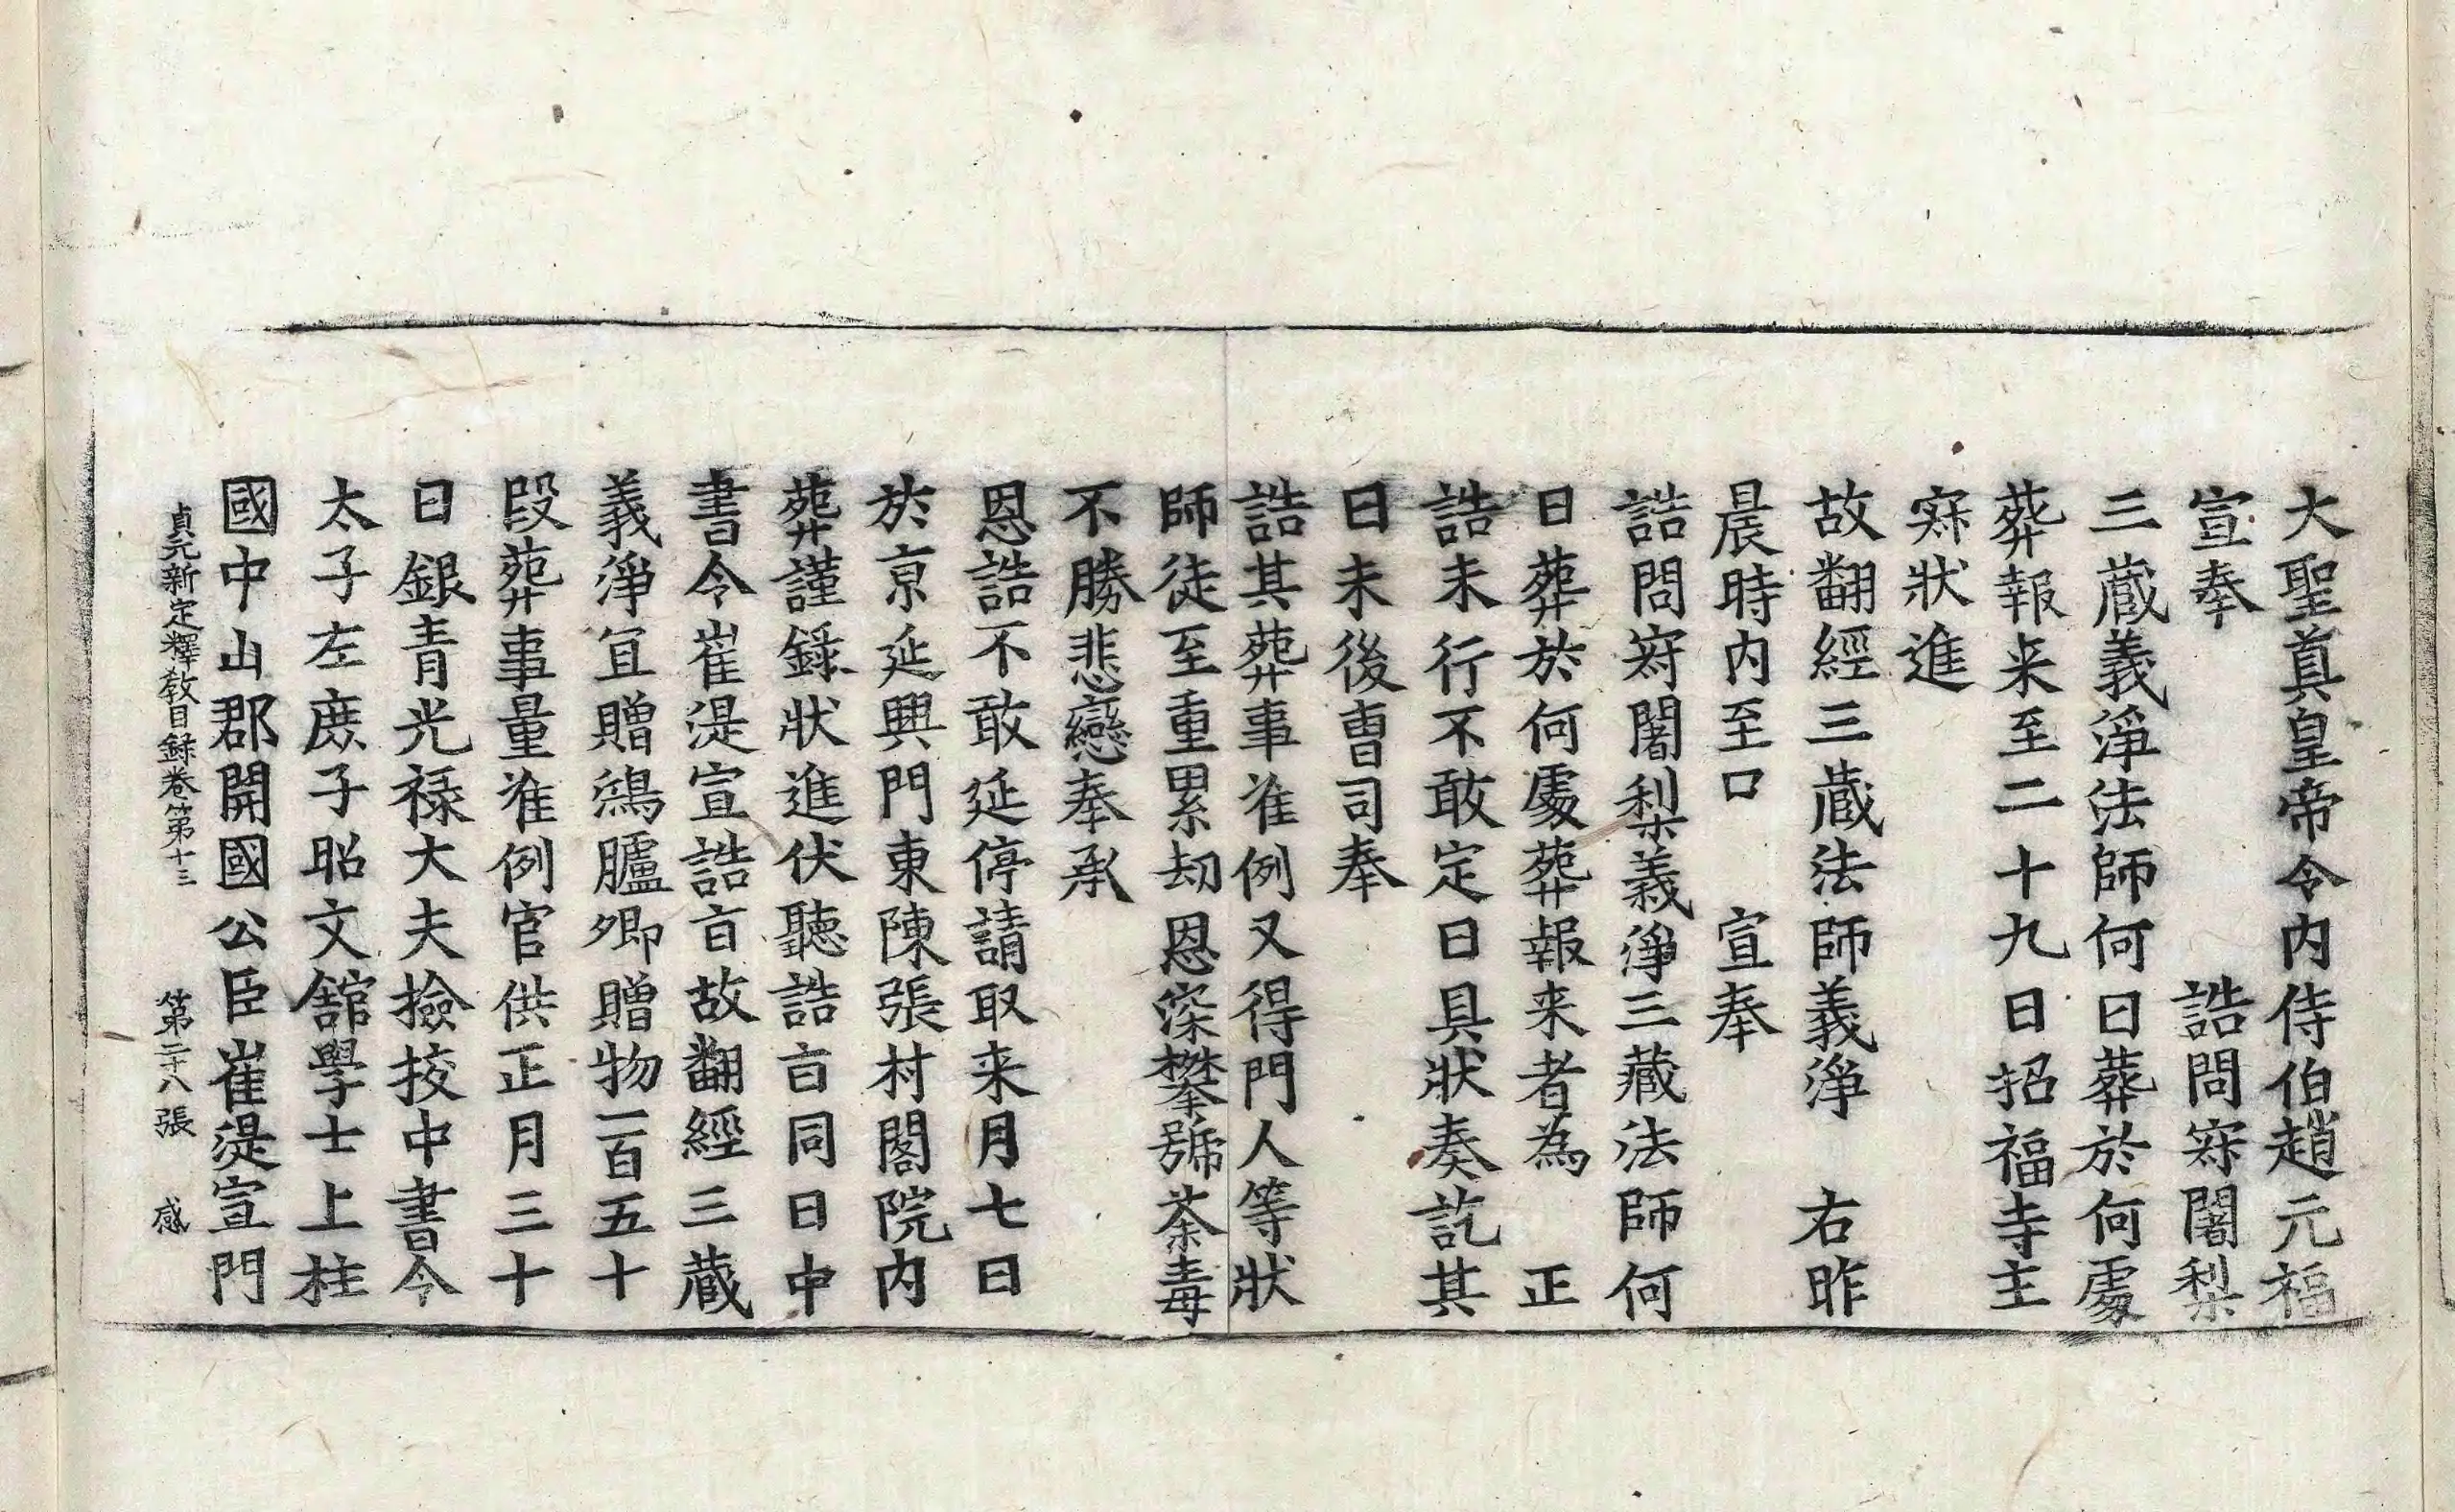 大聖真皇帝令内侍伯趙元福
宣奉　　　　　誥問寀闍梨
三蔵義淨法師何日葬於何處
葬報来至二十九日招福寺主
寀狀進
故翻經三蔵法師義淨　右昨
晨時内至口　宣奉
誥問寀闍梨義淨三藏法師何
日葬於何處葬報来者為　正
誥未行不敢定日具狀奏訖其
日未後曺司奉
誥其葬事准例又得門人等狀
師徒至重累刼恩深攀號荼毒
不勝悲戀奉承
恩誥不敢延停請取来月七日
於京延興門東陳張村閣院内
葬謹録狀進伏聽誥㫖同日中
書令崔湜宣誥㫖故翻經三蔵
義淨冝贈鴻臚卿贈物一百五十
段葬事量准例官供正月三十
日銀青光禄大夫撿挍中書令
太子左庶子昭文舘學士上柱
國中山郡開國公臣崔湜宣門
貞元新定釋教目録卷第十三　第二十八張　感